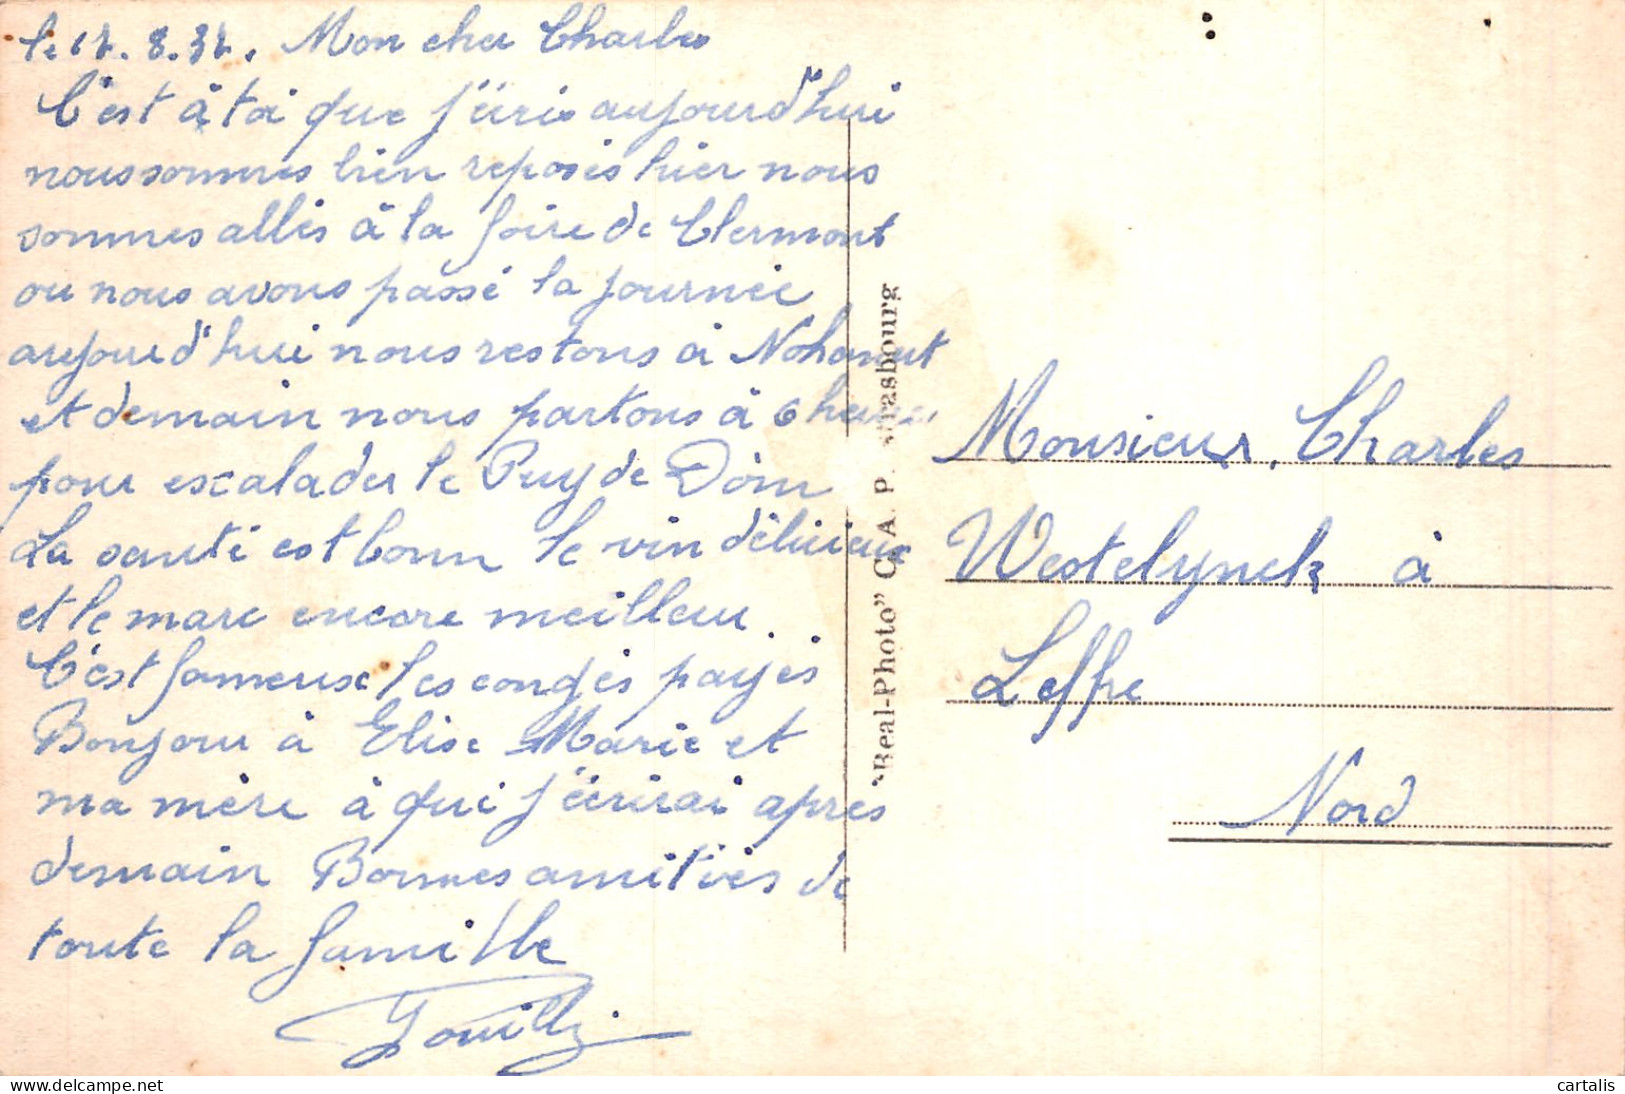 Mon cher Charles
C'est à toi que j'écris aujourd'hui
nous sommes bien reposés hier nous
sommes allés à la foire de Clermont
ou nous avons passé la journée
aujourd'hui nous restons à Nohanent
et demain nous partons à 6 heures
pour escalader le Puy de Dôm
La santé est bonn le vin délicieux
et le marc encore meilleur.
C'est fameux les congés payés
Bonjour à Elise Marie et
ma mère à qui j'écrirai après
demain Bonnes amitiés de
toute la famille
"Real-Photo" C. A. P. Strasbourg
Monsieur, Charles
Westelynck à
Leffre
Nord
cartalis